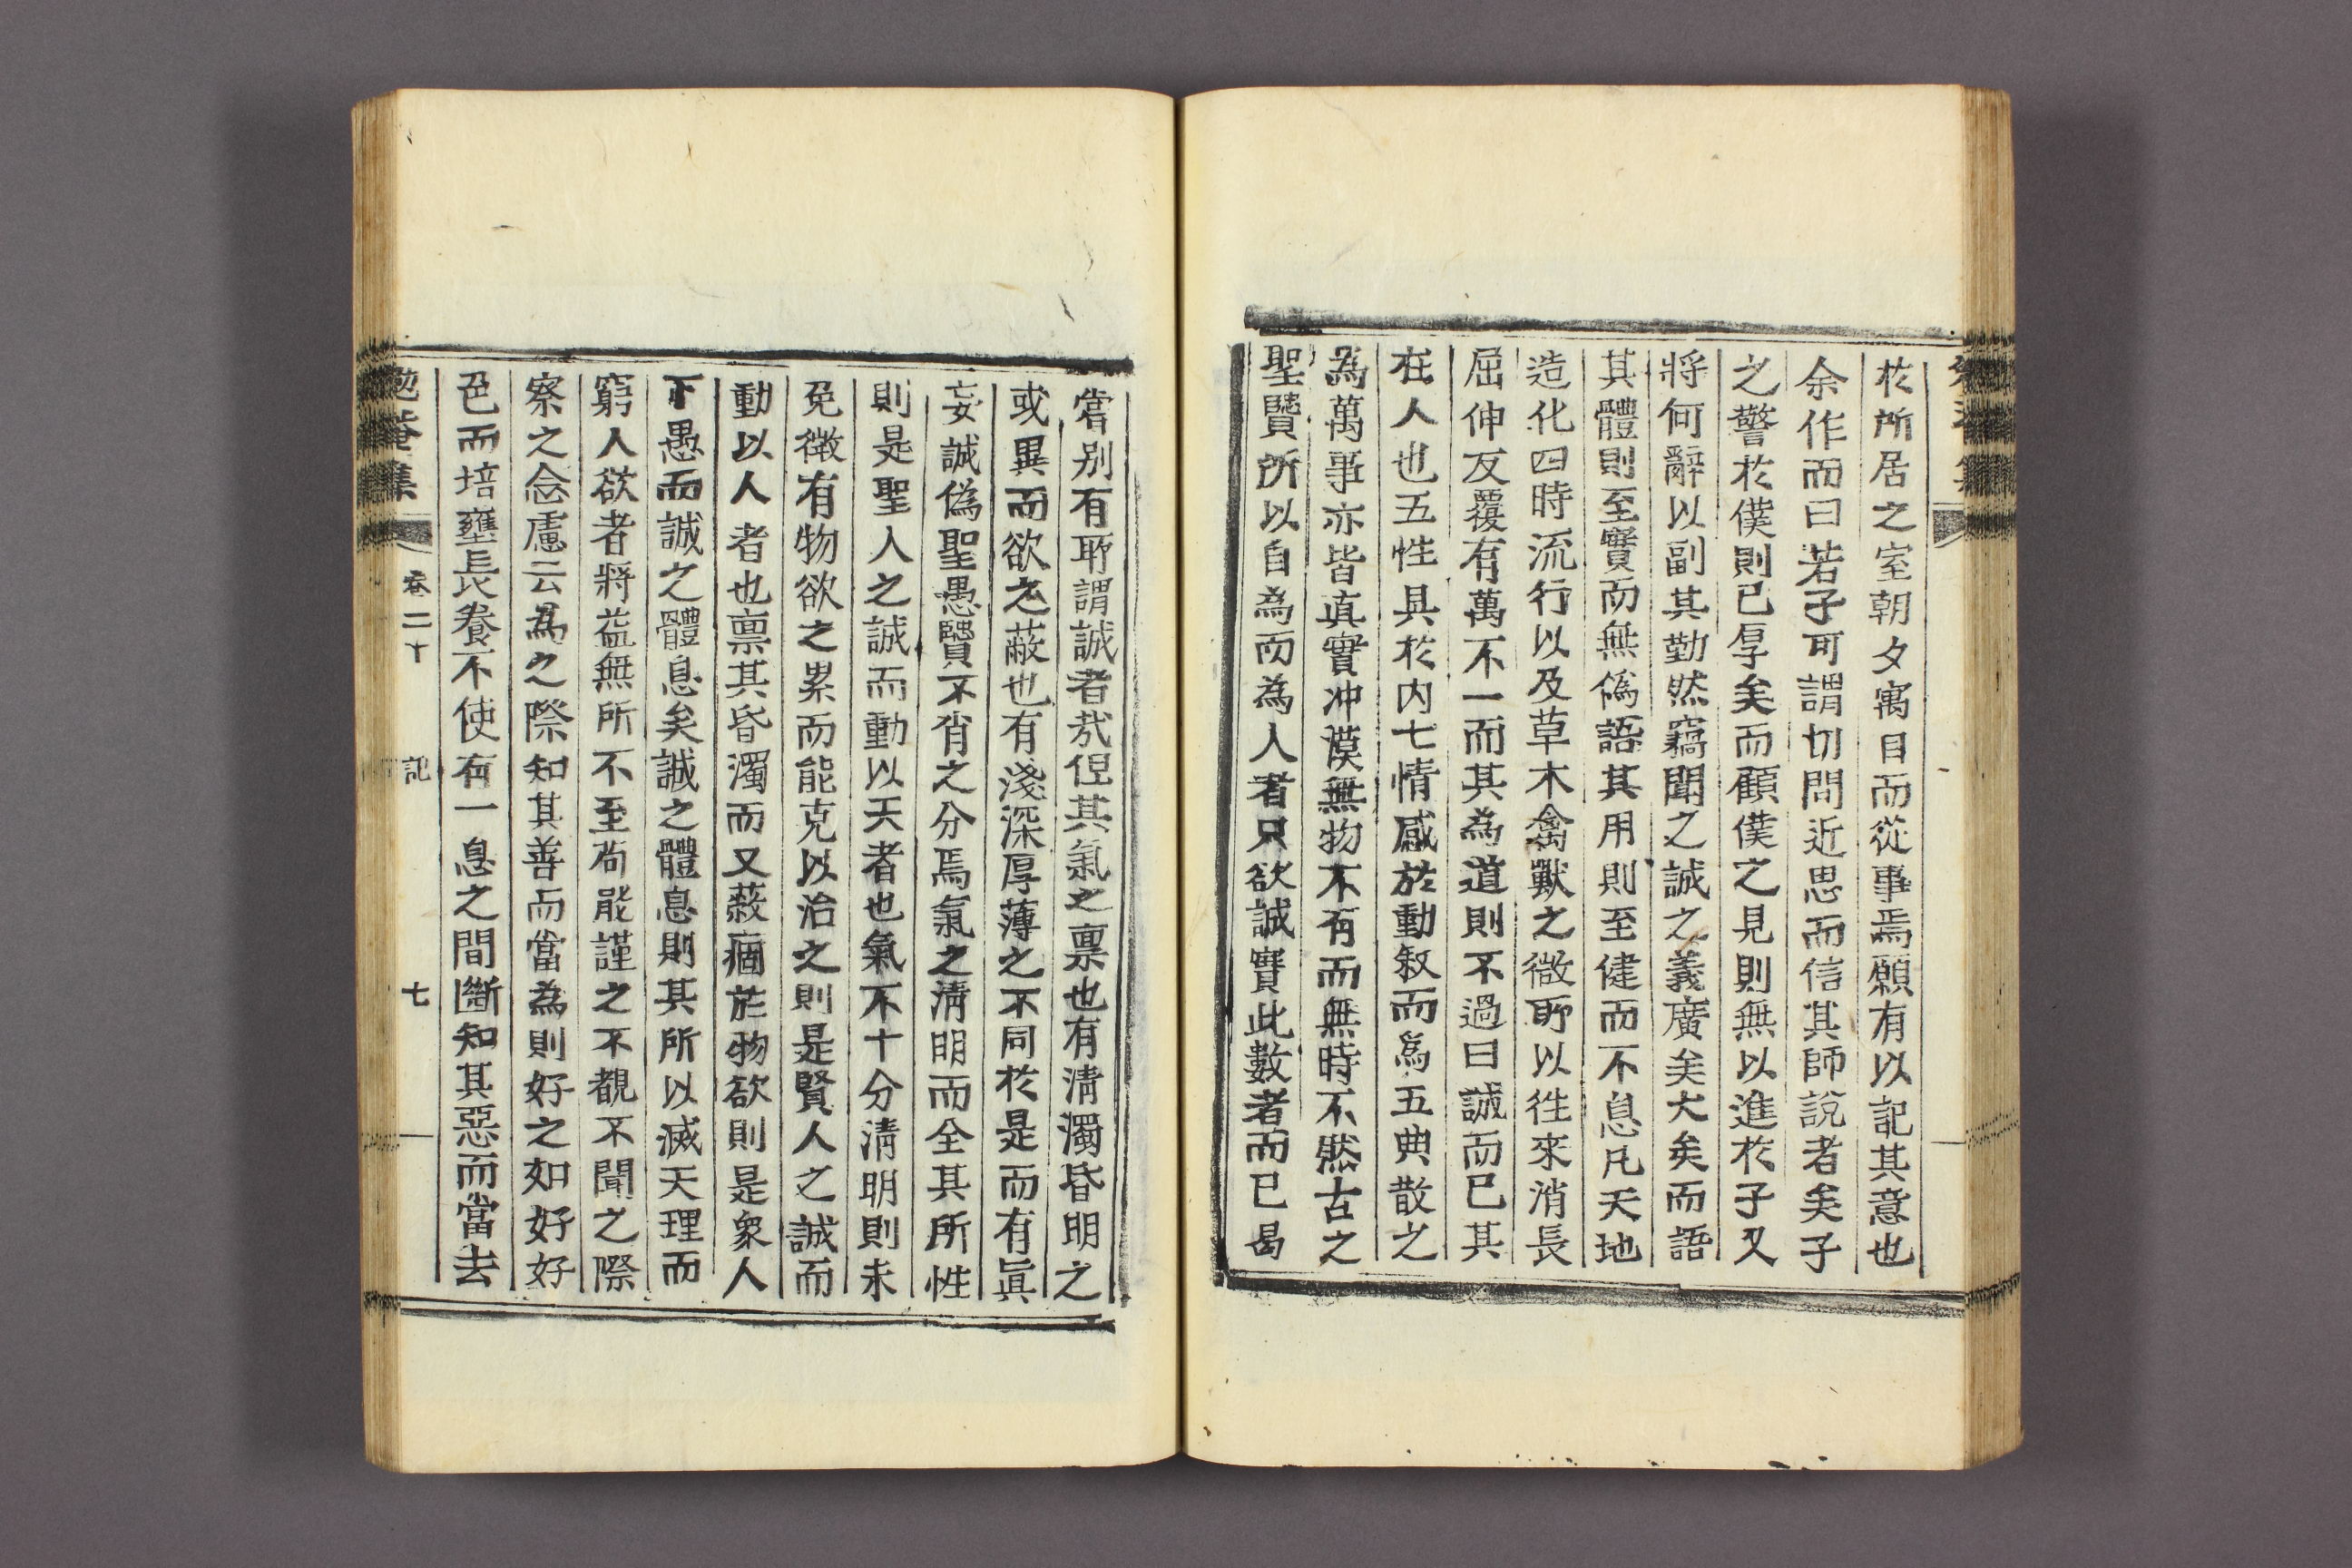 於所居之室朝夕寓目而從事焉願有以記其意也
余作而曰若子可謂切問近思而信其師說者矣子
之警於僕則已厚矣而顧僕之見則無以進於子又
將何辭以副其勤然竊聞之誠之義廣矣大矣而語
其體則至實而無僞語其用則至健而不息凡天地
造化四時流行以及草木禽獸之微所以徃來消長
屈伸反覆有萬不一而其為道則不過曰誠而已其
在人也五性具於内七情感於動敘而爲五典散之
為萬事亦皆真實冲漠無物不有而無時不然古之
聖賢所以自為而為人者只欲誠實此數者而已曷
嘗别有所謂誠者㢤但其氣之禀也有清濁昏明之
或異而欲之蔽也有淺深厚薄之不同於是而有眞
妄誠偽聖愚賢不肖之分焉氣之淸明而全其所性
則是聖人之誠而動以天者也氣不十分清明則未
免徵有物欲之累而能克以治之則是賢人之誠而
動以人者也禀其昏濁而又蔽痼於物欲則是衆人
下愚而誠之體息矣誠之體息則其所以滅天理而
窮人欲者將益無所不至苟能謹之不覩不聞之際
察之念慮云為之際知其善而當為則好之如好好
色而培壅長養不使有一息之間斷知其惡而當去
勉菴集 卷二十 記 七